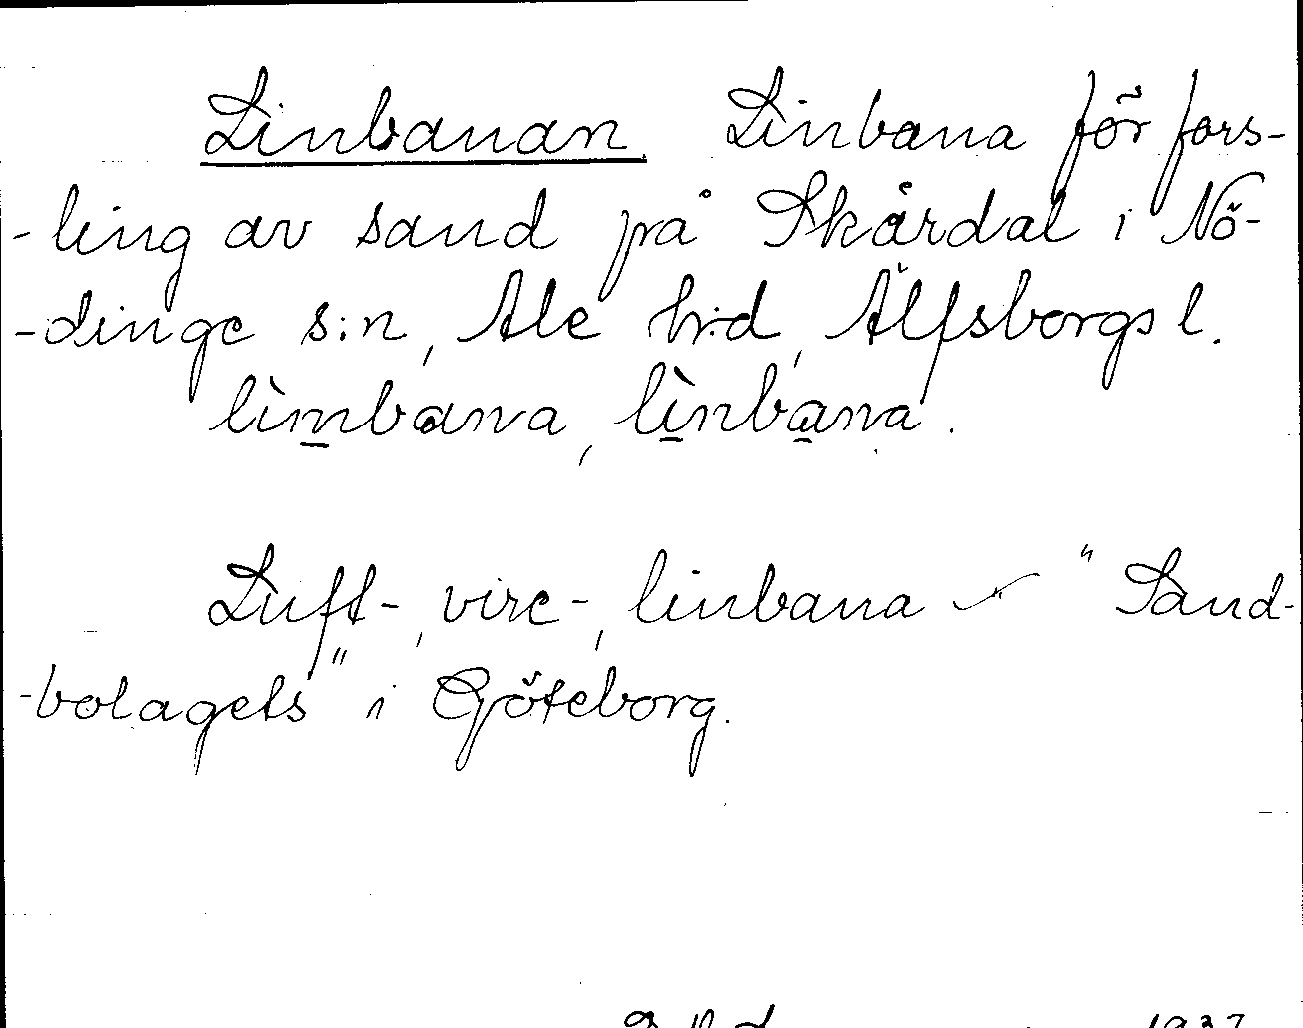 Linbanan. Linbana för fors-
-ling av sand på Skårdal i Nö-
-dinge s:n, Ale h:d, Älfsborgs l.
lìmbana, lìnbana.
Luft-, vire-, linbana " Sand-
-bolagets" i Göteborg.
1937